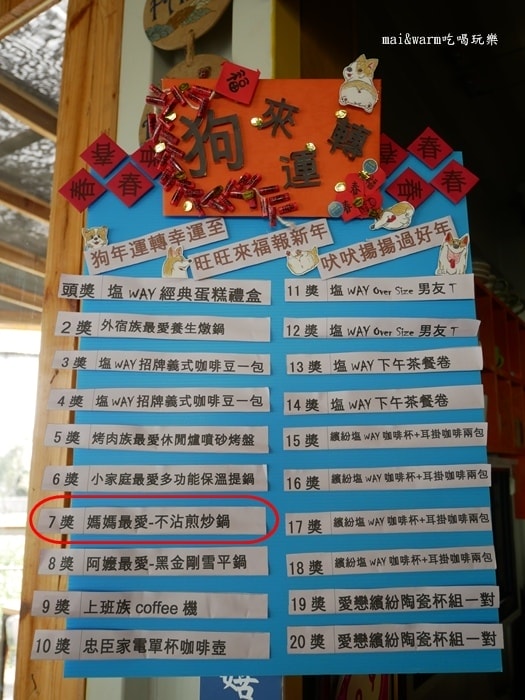 mai&warm吃喝玩樂
福
狗來運轉
春 春 春 春
春 春 春 春
狗年運轉幸運至
旺旺來福報新年
吠吠揚揚過好年
頭獎 塩 WAY 經典蛋糕禮盒
2 獎 外宿族最愛養生燉鍋
3 獎 塩 WAY 招牌義式咖啡豆一包
4 獎 塩 WAY 招牌義式咖啡豆一包
5 獎 烤肉族最愛休閒爐噴砂烤盤
6 獎 小家庭最愛多功能保溫提鍋
7 獎 媽媽最愛-不沾煎炒鍋
8 獎 阿嬤最愛-黑金剛雪平鍋
9 獎 上班族 coffee 機
10 獎 忠臣家電單杯咖啡壺
11 獎 塩 WAY Over Size 男友 T
12 獎 塩 WAY Over Size 男友 T
13 獎 塩 WAY 下午茶餐卷
14 獎 塩 WAY 下午茶餐卷
15 獎 繽紛塩 WAY 咖啡杯+耳掛咖啡兩包
16 獎 繽紛塩 WAY 咖啡杯+耳掛咖啡兩包
17 獎 繽紛塩 WAY 咖啡杯+耳掛咖啡兩包
18 獎 繽紛塩 WAY 咖啡杯+耳掛咖啡兩包
19 獎 愛戀繽紛陶瓷杯組一對
20 獎 愛戀繽紛陶瓷杯組一對